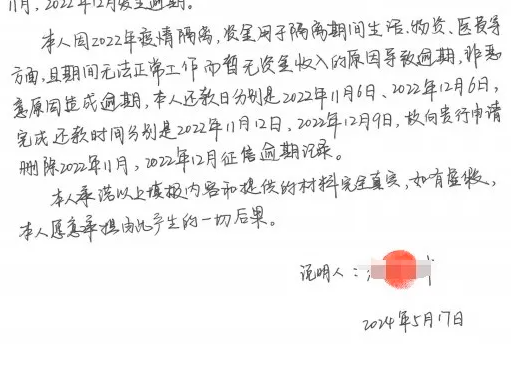 11月，2022年12月发生逾期。
本人因2022年疫情隔离，资金用于隔离期间生活、物资、医疗等
方面，且期间无法正常工作而暂无资金收入的原因导致逾期，非恶
意原因造成逾期，本人还款日分别是2022年11月6日、2022年12月6日，
完成还款时间分别是2022年11月12日、2022年12月9日，故向贵行申请
删除2022年11月，2022年12月征信逾期记录。
本人承诺以上填报内容和提供的材料完全真实，如有虚假，
本人愿意承担由此产生的一切后果。
说明人：
2024年5月17日